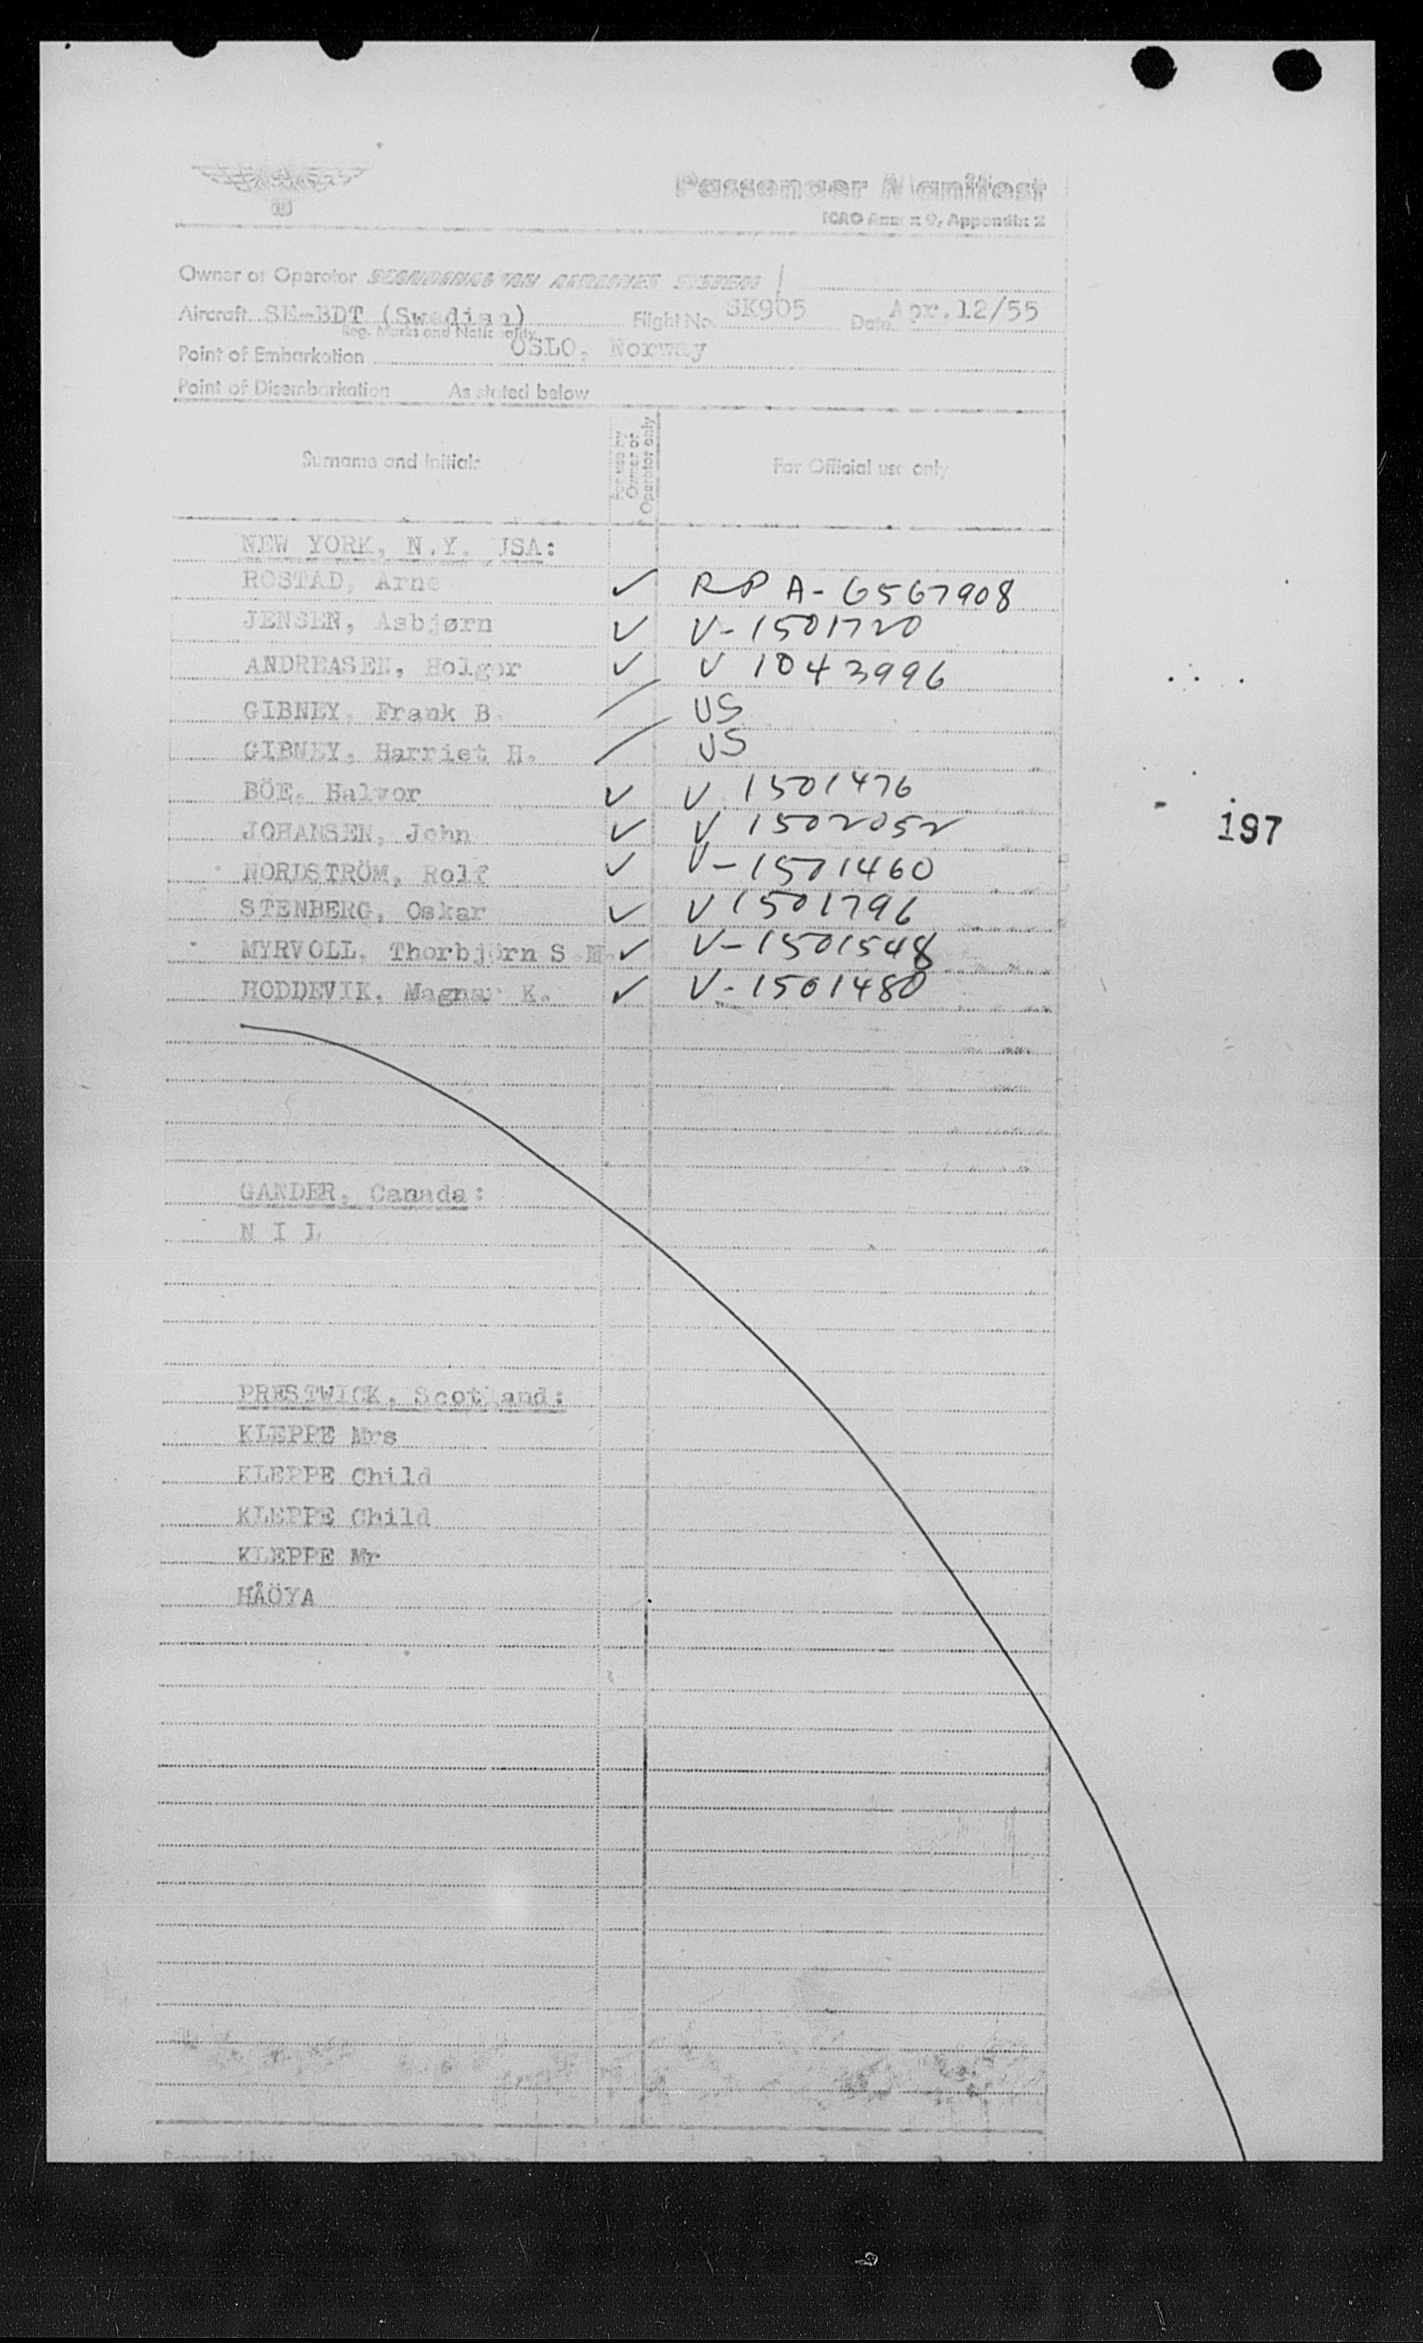 Passenger Manifest
ICAO Annex 9, Appendix 2
Owner or Operator SCANDINAVIAN AIRLINES SYSTEM
Aircraft SE-BDT (Swedish) Flight No. SK905 Date Apr.12/55
Reg. Marks and Nationality
Point of Embarkation OSLO, Norway
Point of Disembarkation As stated below
Surname and Initials For use by Owner or Operator only For Official use only
NEW YORK, N.Y. USA:
ROSTAD, Arne ✓ RP A-6567908
JENSEN, Asbjørn ✓ V-1501720
ANDREASEN, Holger ✓ V 1043996
GIBNEY, Frank B. / US
GIBNEY, Harriet H. / US
BÖE, Halvor ✓ V 1501476
JOHANSEN, John ✓ V 1502052
197
NORDSTRÖM, Rolf ✓ V-1501460
STENBERG, Oskar ✓ V 1501796
MYRVOLL, Thorbjørn S.M. ✓ V-1501548
HODDEVIK, Magnar K. ✓ V-1501480
GANDER, Canada:
N I L
PRESTWICK, Scotland:
KLEPPE Mrs
KLEPPE Child
KLEPPE Child
KLEPPE Mr
HÅÖYA